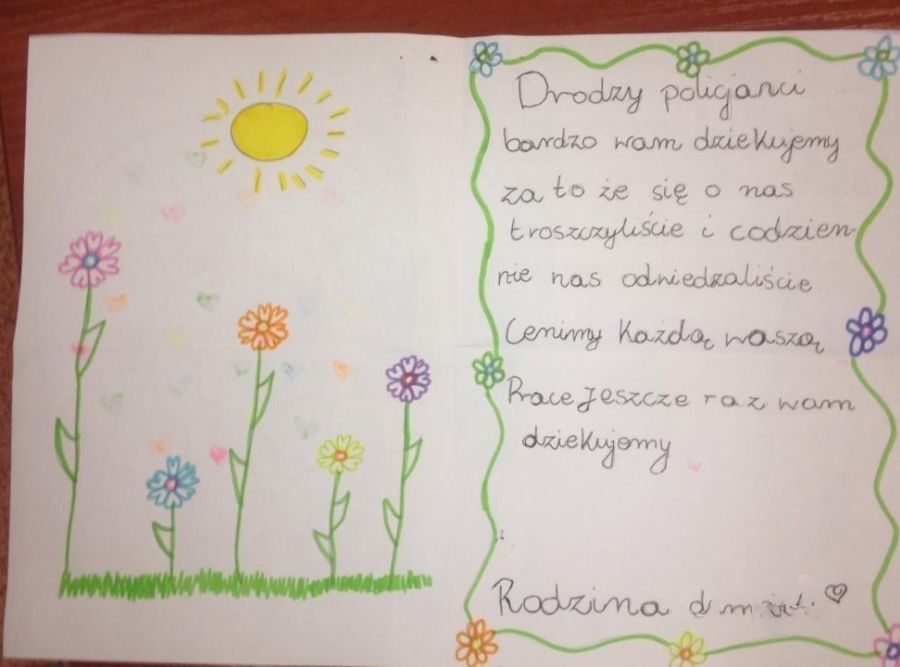 Drodzy policjanci
bardzo wam dziekujemy
za to że się o nas
troszczyliście i codzien-
nie nas odwiedzaliście
Cenimy każdą waszą
Prace Jeszcze raz wam
dziekujemy
Rodzina